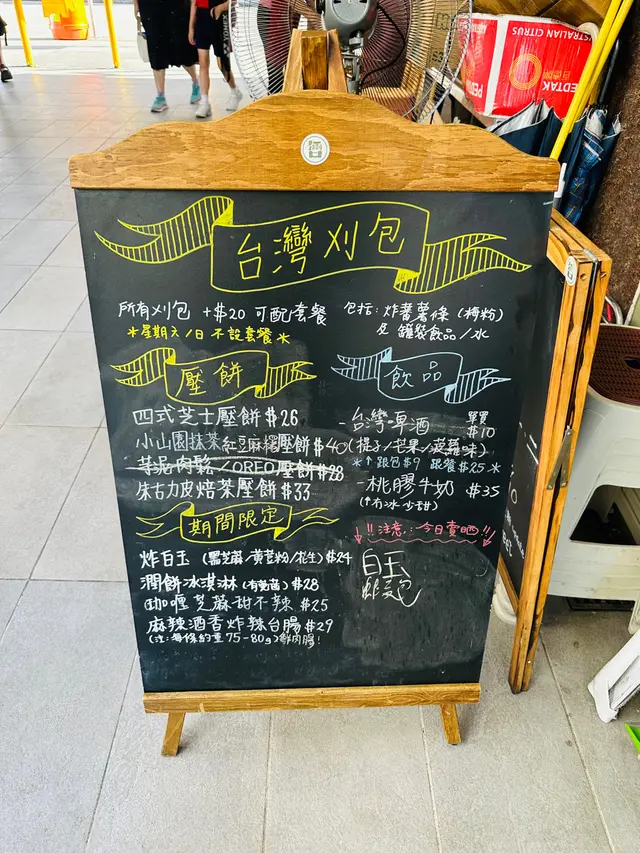 台灣刈包
所有刈包 +$20 可配套餐
*星期六/日 不設套餐*
包括: 炸蕃薯條 (梅粉)
及 罐裝飲品/水
壓餅
四式芝士壓餅 $26
小山園抹茶紅豆麻糬壓餅 $40
芋泥肉鬆/OREO壓餅 $28
朱古力皮焙茶壓餅 $33
飲品
-台灣啤酒 單買 $10
(提子/芒果/菠蘿味)
*↑跟包$9 跟餐$25*
-桃膠牛奶 $35
(↑有冰 少甜)
期間限定
炸白玉 (黑芝麻/黃荳粉/花生) $24
潤餅冰淇淋 (有芫茜) $28
咖喱芝麻甜不辣 $25
麻辣酒香炸辣台腸 $29
(注: 每條約重75-80g) 鮮肉腸!
!!注意: 今日賣晒!!
白玉
炸包
AUSTRALIAN CITRUS